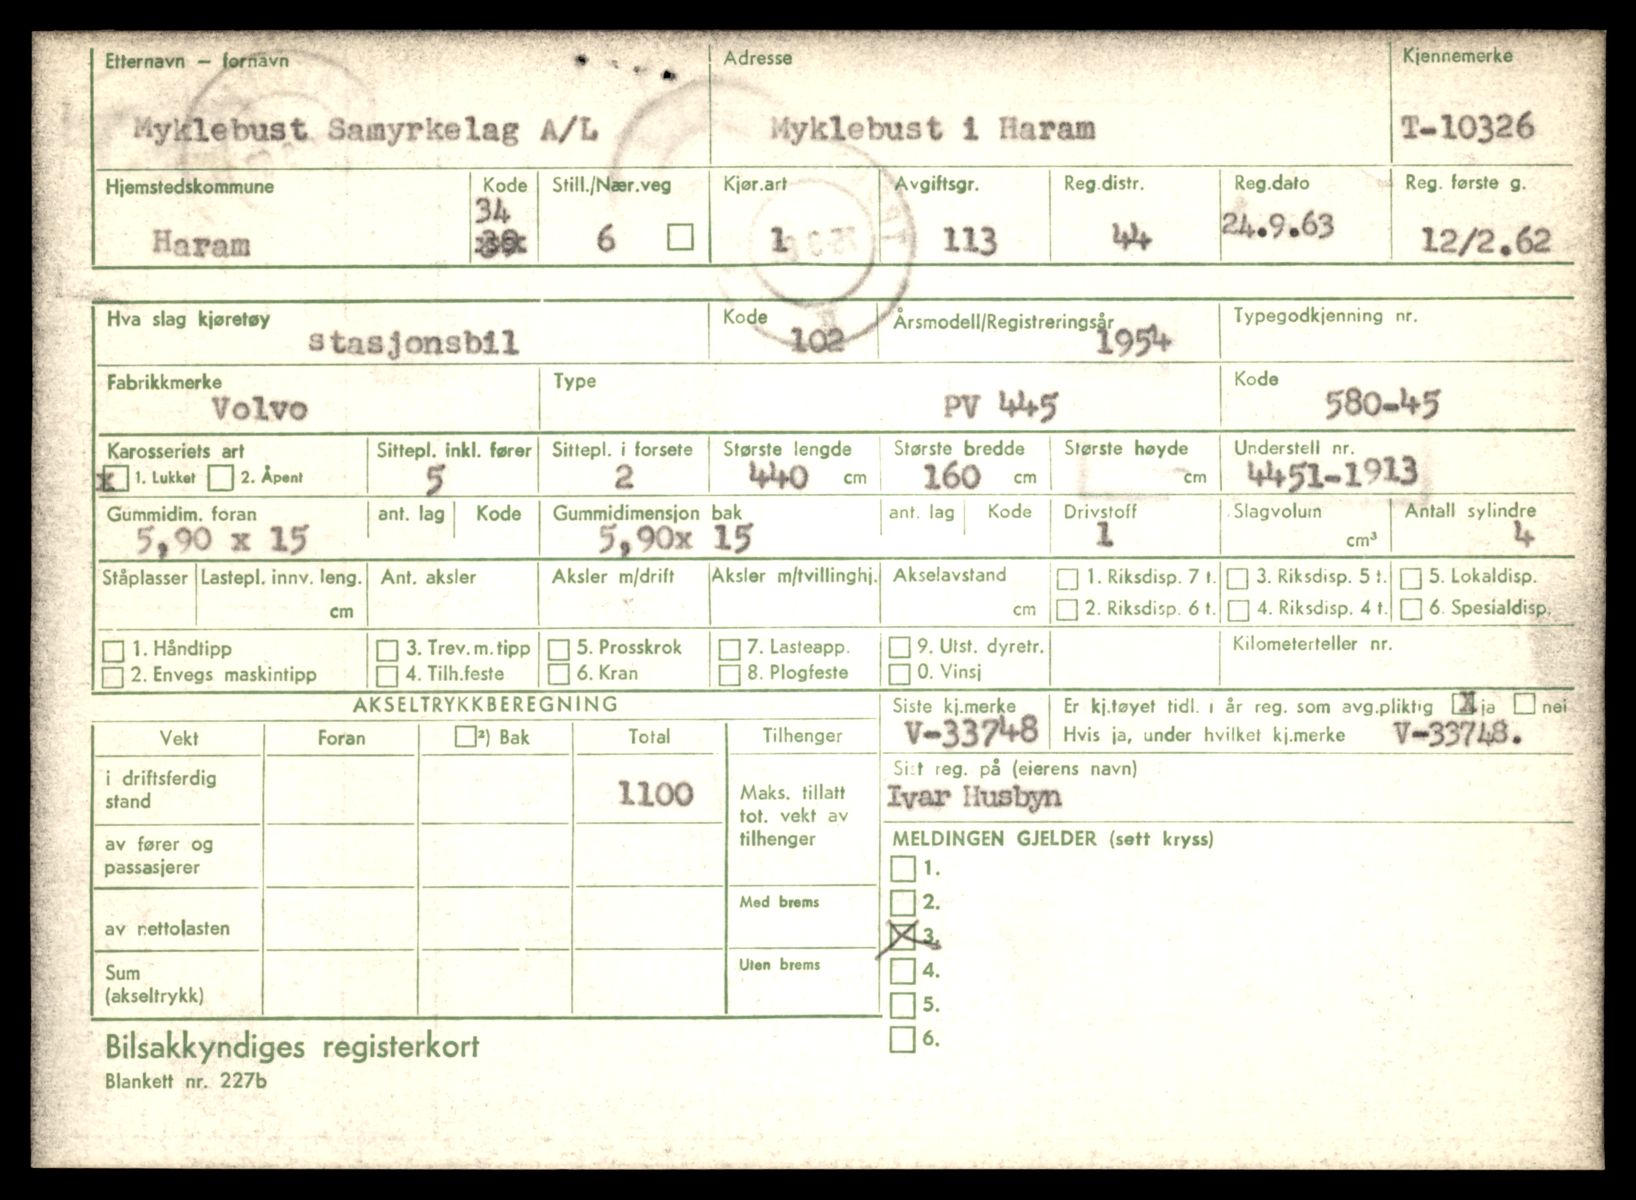 Etternavn — fornavn Adresse Kjennemerke
Myklebust Samyrkelag A/L Myklebust i Haram T-10326
Hjemstedskommune Kode Still./Nær.veg Kjør.art Avgiftsgr. Reg.distr. Reg.dato Reg. første g.
34
Haram 6 1 113 44 24.9.63 12/2.62
Hva slag kjøretøy Kode Årsmodell/Registreringsår Typegodkjenning nr.
stasjonsbil 102 1954
Fabrikkmerke Type Kode
Volvo PV 445 580-45
Karosseriets art Sittepl. inkl. fører Sittepl. i forsete Største lengde Største bredde Største høyde Understell nr.
x 1. Lukket 2. Åpent 5 2 440 cm 160 cm cm 4451-1913
Gummidim. foran ant. lag Kode Gummidimensjon bak ant. lag Kode Drivstoff Slagvolum Antall sylindre
5,90 x 15 5,90x 15 1 cm³ 4
Ståplasser Lastepl. innv. leng. Ant. aksler Aksler m/drift Aksler m/tvillinghj. Akselavstand 1. Riksdisp. 7 t. 3. Riksdisp. 5 t. 5. Lokaldisp.
cm cm 2. Riksdisp. 6 t. 4. Riksdisp. 4 t. 6. Spesialdisp.
1. Håndtipp 3. Trev.m.tipp 5. Prosskrok 7. Lasteapp. 9. Utst. dyretr. Kilometerteller nr.
2. Envegs maskintipp 4. Tilh.feste 6. Kran 8. Plogfeste 0. Vinsj
AKSELTRYKKBEREGNING Siste kj.merke Er kj.tøyet tidl. i år reg. som avg.pliktig x ja nei
Vekt Foran ²) Bak Total Tilhenger V-33748 Hvis ja, under hvilket kj.merke V-33748.
i driftsferdig stand 1100 Maks. tillatt tot. vekt av tilhenger Sist reg. på (eierens navn)
Ivar Husbyn
av fører og passasjerer MELDINGEN GJELDER (sett kryss)
1.
av nettolasten Med brems 2.
3.
Sum (akseltrykk) Uten brems 4.
5.
Bilsakkyndiges registerkort 6.
Blankett nr. 227b